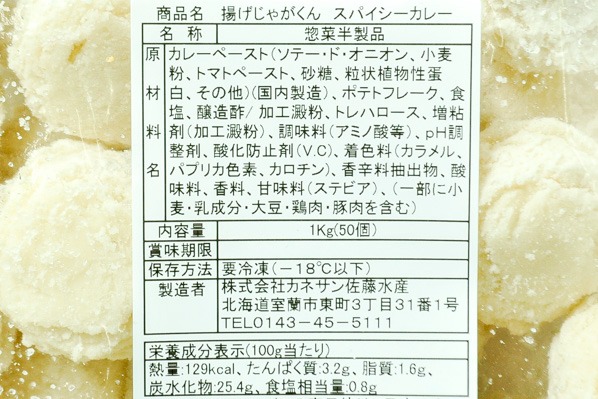 商品名 揚げじゃがくん スパイシーカレー
名称 惣菜半製品
原材料名 カレーペースト(ソテー・ド・オニオン、小麦
粉、トマトペースト、砂糖、粒状植物性蛋
白、その他)(国内製造)、ポテトフレーク、食
塩、醸造酢/加工澱粉、トレハロース、増粘
剤(加工澱粉)、調味料(アミノ酸等)、pH調
整剤、酸化防止剤(V.C)、着色料(カラメル、
パプリカ色素、カロチン)、香辛料抽出物、酸
味料、香料、甘味料(ステビア)、(一部に小
麦・乳成分・大豆・鶏肉・豚肉を含む)
内容量 1Kg(50個)
賞味期限
保存方法 要冷凍(-18℃以下)
製造者 株式会社カネサン佐藤水産
北海道室蘭市東町3丁目31番1号
TEL0143-45-5111
栄養成分表示(100g当たり)
熱量:129kcal、たんぱく質:3.2g、脂質:1.6g、
炭水化物:25.4g、食塩相当量:0.8g